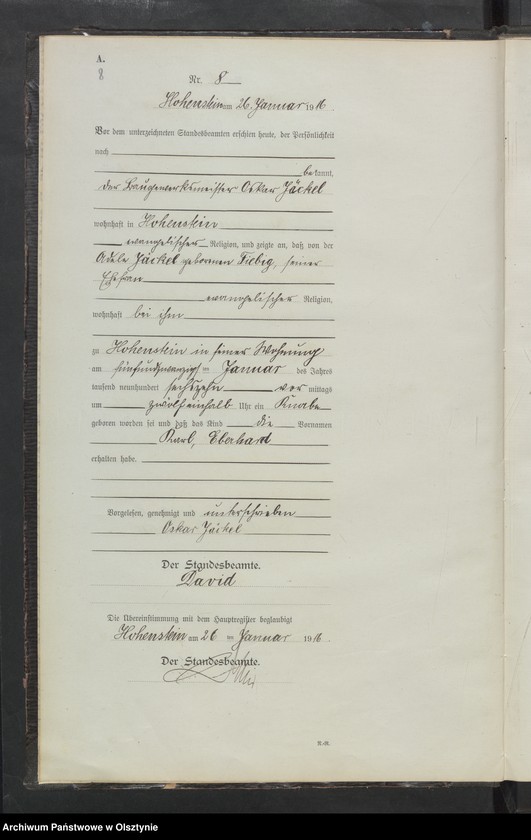 A.
8
Nr. 8
Hohenstein am 26. Januar 1916.
Vor dem unterzeichneten Standesbeamten erschien heute, der Persönlichkeit
nach
bekannt,
der Baugewerksmeister Oskar Jäckel
wohnhaft in Hohenstein
evangelischer Religion, und zeigte an, daß von der
Adele Jäckel geborenen Fiebig, seiner
Ehefrau
evangelischer Religion,
wohnhaft bei ihm
zu Hohenstein in seiner Wohnung
am fünfundzwanzigsten Januar des Jahres
tausend neunhundert sechszehn vor mittags
um zwölfeinhalb Uhr ein Knabe
geboren worden sei und daß das Kind die Vornamen
Karl, Eberhard
erhalten habe.
Vorgelesen, genehmigt und unterschrieben
Oskar Jäckel
Der Standesbeamte.
David
Die Übereinstimmung mit dem Hauptregister beglaubigt
Hohenstein am 26 ten Januar 1916.
Der Standesbeamte.
Archiwum Państwowe w Olsztynie